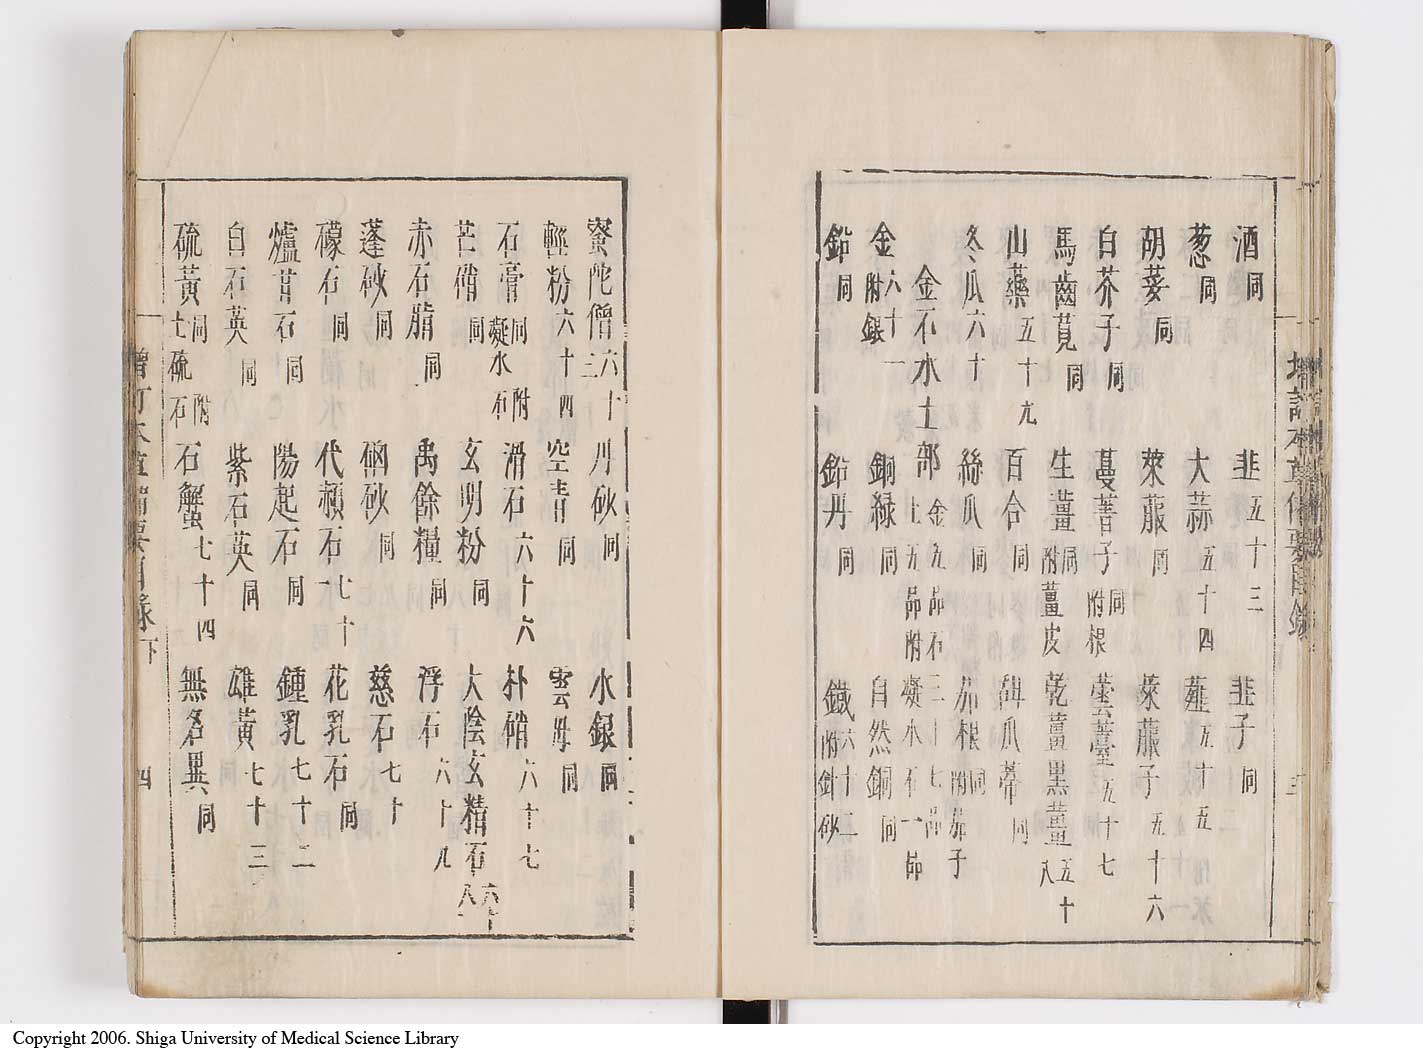 酒同 韭五十三 韭子同
葱同 大蒜五十四 薤五十五
胡荽同 萊菔同 萊菔子五十六
白芥子同 蔓菁子同附根 蕓薹五十七
馬齒莧同 生薑同附薑皮 乾薑黑薑五十八
山藥五十九 百合同 甜瓜蒂同
冬瓜六十 絲瓜同 茄根同附茄子
金石水土部 金五品石三十七品土五品附凝水石一品
金六十一附銀 銅綠同 自然銅同
鉛同 鉛丹同 鐵六十二附針砂
蜜陀僧六十三 丹砂同 水銀同
輕粉六十四 空青同 雲母同
石膏同凝水石附 滑石六十六 朴硝六十七
芒硝同 玄明粉同 大陰玄精石六十八
赤石脂同 禹餘糧同 浮石六十九
蓬砂同 硇砂同 慈石七十
礞石同 代赭石七十一 花乳石同
爐甘石同 陽起石同 鍾乳七十二
白石英同 紫石英同 雄黃七十三
硫黃同土硫石附 石蟹七十四 無名異同
增訂本草備要目錄 下 四
Copyright 2006. Shiga University of Medical Science Library